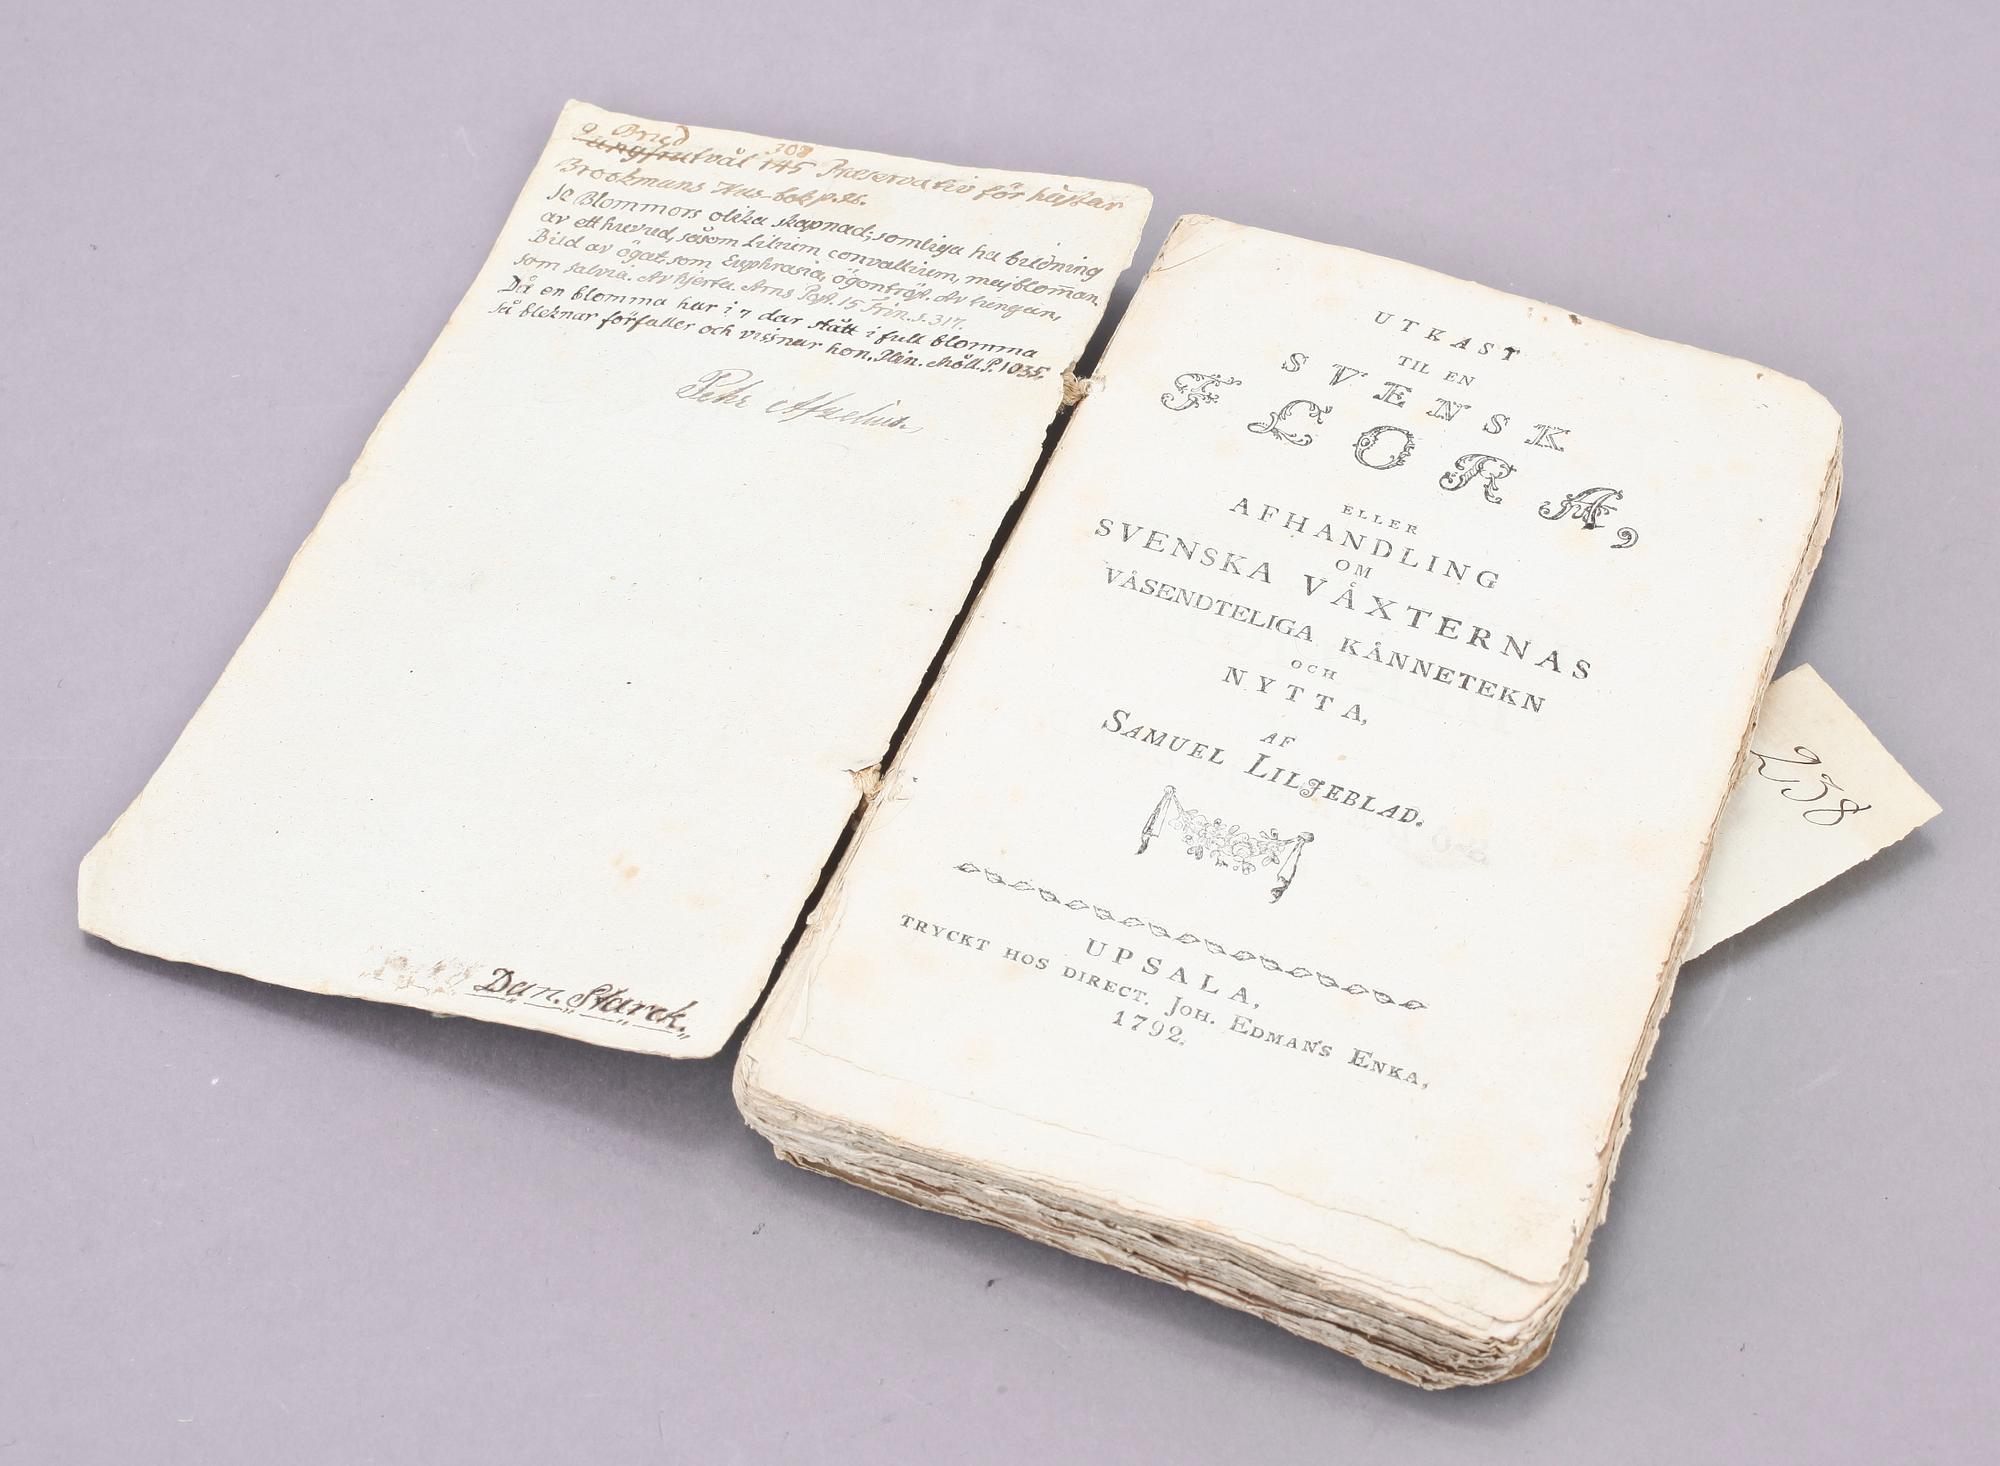 Brud
308
145 Præservativ för hustar
Brookmans Hus-bok p. 26.
Blommors olika skapnad; somliga ha bildning
av ett huvud, såsom Lilium convallium, majbloman,
Bild av ögat som Euphrasia, ögontröst. Av tungan,
som salvia. Av hjerta. Arns Post. 15 Trin. s. 317.
Då en blomma har i 7 dar stått i full blomma
så bleknar förfaller och vissnar hon. Hin. Möll. P. 1035.
Pehr Afzelius
Dan. Starck.
UTKAST
TIL EN
SVENSK
FLORA,
ELLER
AFHANDLING
OM
SVENSKA VÅXTERNAS
VÅSENDTELIGA KÅNNETEKN
OCH
NYTTA,
AF
SAMUEL LILJEBLAD.
UPSALA,
TRYCKT HOS DIRECT. JOH. EDMANS ENKA,
1792.
238